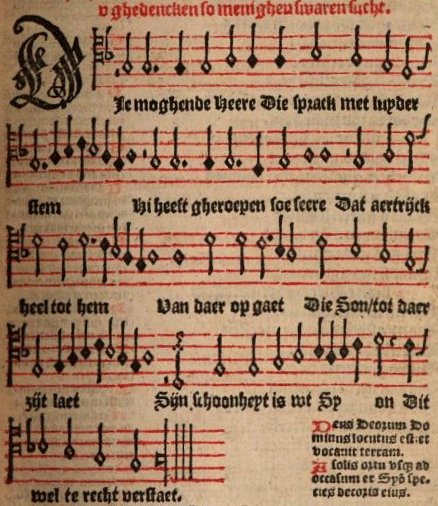 v ghedencken so menighen swaren sucht.
DJe moghende Heere Die sprack met luyder
stem Hi heeft gheroepen soe seere Dat aertrijck
heel tot hem Van daer op gaet Die Son/tot daer
zijt laet Sijn schoonheyt is wt Sy on Dit
wel te recht verstaet.
Deus Deorum Do
minus locutus est: et
vocauit terram.
A solis ortu vsq; ad
occasum ex Syō spe.
cies decoris eius.